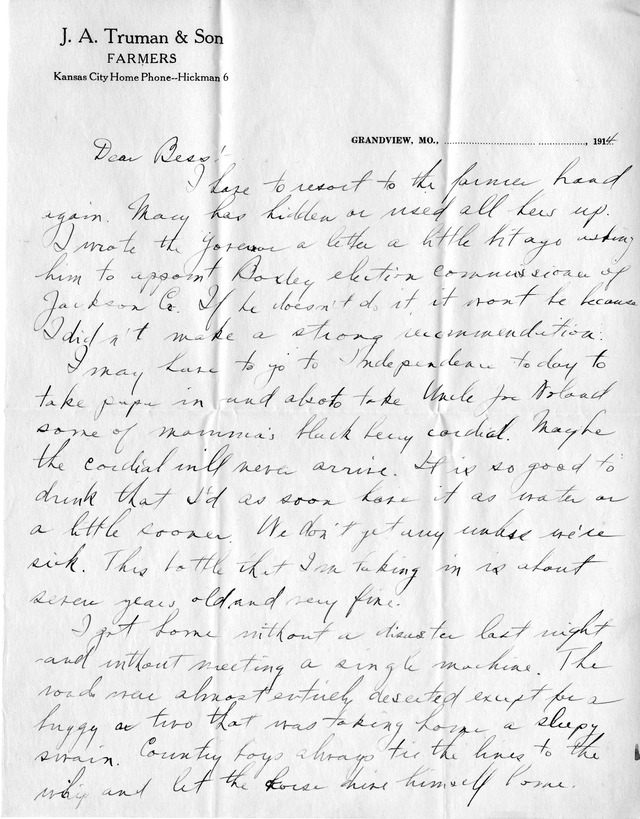 J. A. Truman & Son
FARMERS
Kansas City Home Phone--Hickman 6
GRANDVIEW, MO., ..............................................., 1914.
Dear Bess:
I have to resort to the farmer hand
again. Mary has hidden or used all hers up.
I wrote the Governor a letter a little bit ago asking
him to appoint Boxley election commissioner of
Jackson Co. If he doesn't do it, it wont be because
I didn't make a strong recommendation.
I may have to go to Independence today to
take papa in and also to take Uncle Joe Noland
some of mamma's black berry cordial. Maybe
the cordial will never arrive. It is so good to
drink that I'd as soon have it as water or
a little sooner. We don't get any unless we're
sick. This bottle that I'm taking in is about
seven years old and very fine.
I got home without a disaster last night
and without meeting a single machine. The
roads were almost entirely deserted except for a
buggy or two that was taking home a sleepy
swain. Country boys always tie the lines to the
whip and let the horse drive himself home.